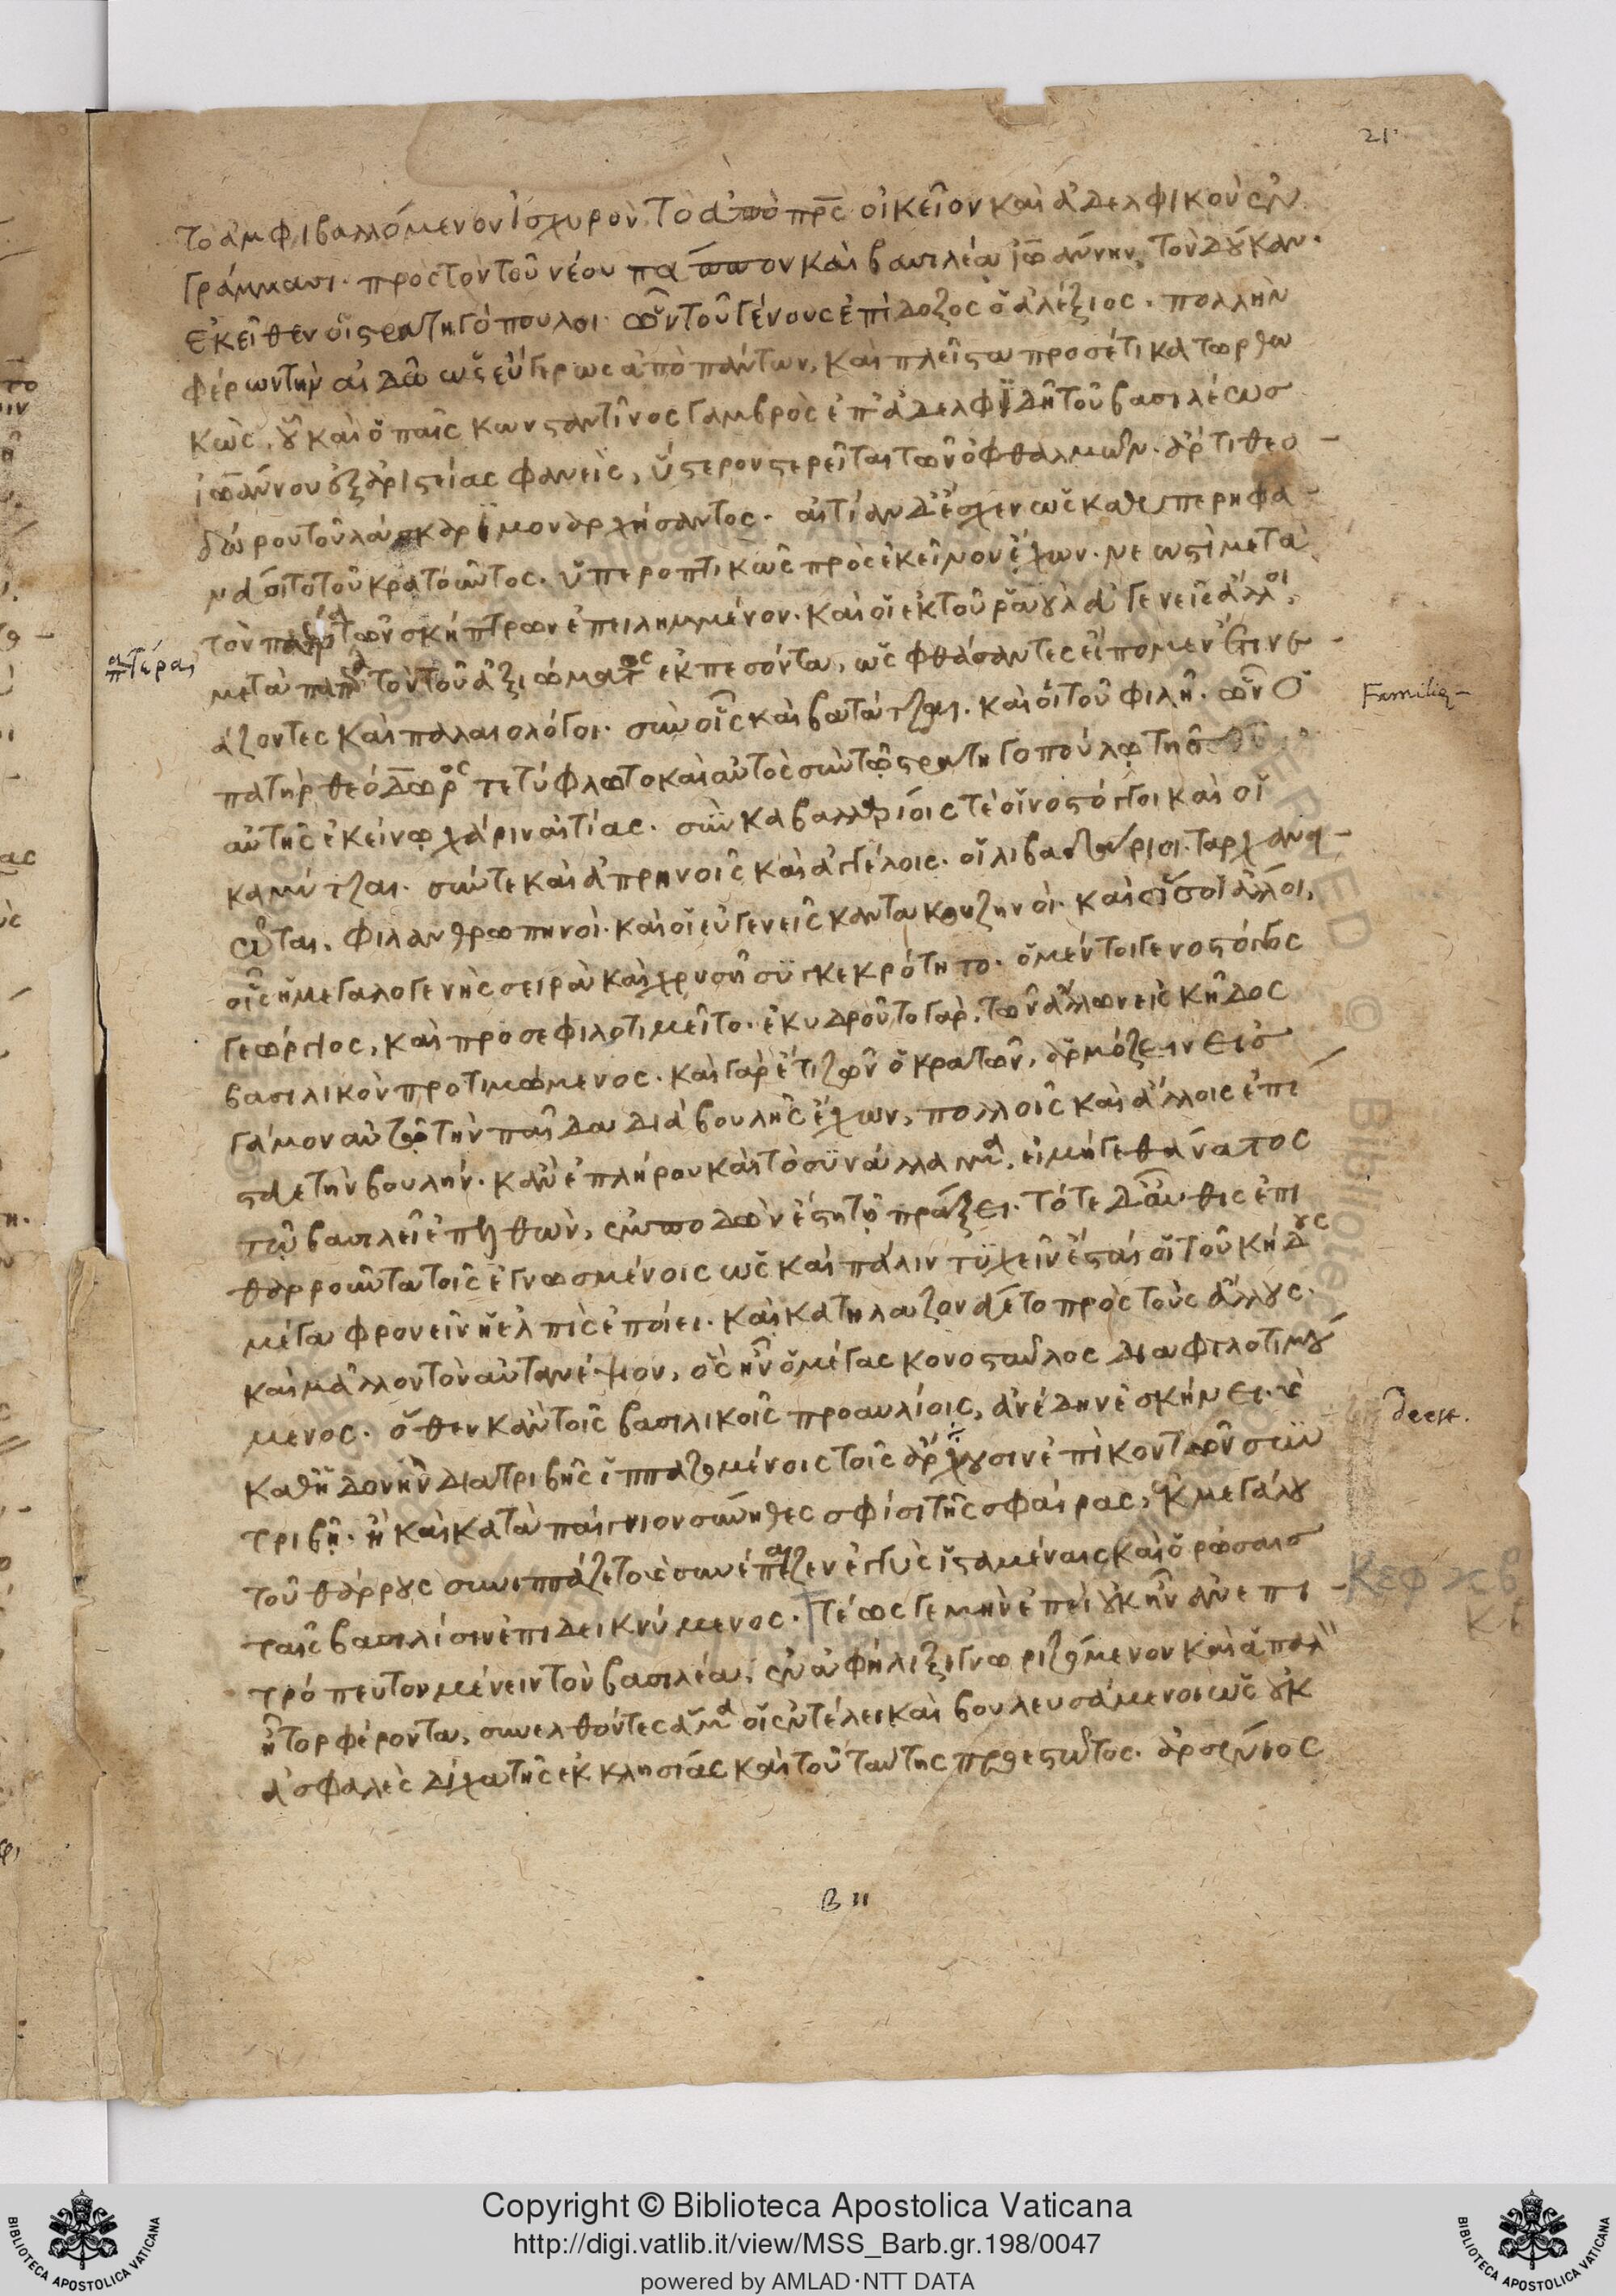 21
το ἀμφιβαλλόμενον ἰσχυρὸν τὸ ἀπὸ πρ̅ς οἰκεῖον καὶ ἀδελφικὸν ἐν
γράμμασι. πρὸς τὸν τοῦ νέου πάππον καὶ βασιλέα ἰωάννην τὸν δούκαν.
ἐκεῖθεν οἱ στρατηγόπουλοι. ὧν τοῦ γένους ἐπίδοξος ὁ ἀλέξιος. πολλὴν
φέρων τὴν αἰδῶ ὡς εὔγηρως ἀπὸ πάντων, καὶ πλεῖστα προσέτι κατωρθω
κὼς, οὗ καὶ ὁ παῖς κωνσταντῖνος γαμβρὸς ἐπ' ἀδελφιδῆ τοῦ βασιλέως
ἰωάννου ἐξ ἀριστείας φανεὶς, ὕστερον στερεῖται τῶν ὀφθαλμῶν. ἄρτι θεο
δώρου τοῦ λάσκαρι μοναρχήσαντος. αἰτίαν δ' ἔσχεν ὡς καθυπερηφα
νεύοιτο τοῦ κρατοῦντος. ὑπεροπτικῶς πρὸς ἐκεῖνον ἔχων. νεωστὶ μετὰ
τὸν τῶν σκήπτρων ἐπειλημμένον. καὶ οἱ ἐκ τοῦ ῥαοὺλ δ' εὐγενεῖς ἄλλοι,
ατέρας
μετὰ τὸν τοῦ ἀξιώματος ἐκπεσόντα, ὡς φθάσαντες εἴπομεν
άζοντες καὶ παλαιολόγοι. σὺν οἷς καὶ βατάτζαι. καὶ οἱ τοῦ φιλῆ. ὧν ὁ
Familiae
πατὴρ θεόδωρος τετύφλωτο καὶ αὐτὸς σὺν τῷ στρατηγοπούλῳ τῆς
αὐτῆς ἐκείνῳ χάριν αἰτίας. σὺν καβαλλαρίοις τὲ οἱ νοστόγγοι καὶ οἱ
καμύτζαι. σύν τε καὶ ἀπρηνοῖς καὶ ἀγγέλοις. οἱ λιβαδάριοι. ταρχανει
ῶται. φιλανθρωπηνοὶ. καὶ οἱ εὐγενεῖς καντακουζηνοί. καὶ ὅσοι ἄλλοι,
οἷς ἡ μεγαλογενὴς σειρὰ καὶ χρυσῆ συγκεκρότητο. ὁ μέντοι γε νοστόγγος
γεώργιος, καὶ προσεφιλοτιμεῖτο. ἐκυδροῦτο γὰρ. τῶν ἄλλων εἰς κῆδος
βασιλικὸν προτιμώμενος. καὶ γὰρ ἔτι ζῶν ὁ κρατῶν, ἁρμόζειν εἰς
γάμον αὐτῷ τὴν παῖδα διὰ βουλῆς ἔχων, πολλοῖς καὶ ἄλλοις ἐπί
στευε τὴν βουλήν. κἂν ἐπλήρου καὶ τὸ συνάλλαγμα, εἰ μήγε θάνατος
τῷ βασιλεῖ ἐπελθὼν, ἐμποδὼν ἔστη τῇ πράξει. τότε δ' αὖθις ἐπι
θαρροῦντα τοῖς ἐγνωσμένοις ὡς καὶ πάλιν τυχεῖν ἔσται οἱ τοῦ κήδους
μέγα φρονεῖν ἡ ἐλπὶς ἐποίει. καὶ κατηλαζονεύετο πρὸς τοὺς ἄλλους.
καὶ μᾶλλον τὸν αὐτανέψιον, ὃς ἦν ὁ μέγας κονοσταῦλος διαφιλοτιμού
μενος. ὅθεν κἀν τοῖς βασιλικοῖς προαυλίοις, ἀνέδην ἐσκήνει. καὶ
καθ' ἡδονὴν διατριβῆς ἱππαζομένοις τοῖς ἄρχουσιν ἐπὶ κοντῶν συν
deest.
τριβῇ. ἢ καὶ κατὰ παίγνιον σύνηθες σφίσι τῆς σφαίρας, ἐκ μεγάλου
τοῦ θάρρους συνιππάζετο καὶ συνέπαιζεν ἐγγὺς ἱσταμέναις καὶ ὁρώσαις
ταῖς βασιλίσιν ἐπιδεικνύμενος. τέως γε μὴν ἐπεὶ οὐκ ἦν ἀνεπι
Κεφ κβ
τρόπευτον μένειν τὸν βασιλέα, ἐν ἀφήλικι γνωριζόμενον καὶ ἁπαλὸν
ἦτορ φέροντα, συνελθόντες ἅμα οἱ ἐν τέλει καὶ βουλευσάμενοι ὡς οὐκ
ἀσφαλὲς δίχα τῆς ἐκκλησίας καὶ τοῦ ταύτης προεστῶτος. ἀρσένιος
B 11
Copyright © Biblioteca Apostolica Vaticana
http://digi.vatlib.it/view/MSS_Barb.gr.198/0047
powered by AMLAD·NTT DATA
BIBLIOTECA APOSTOLICA VATICANA
BIBLIOTECA APOSTOLICA VATICANA